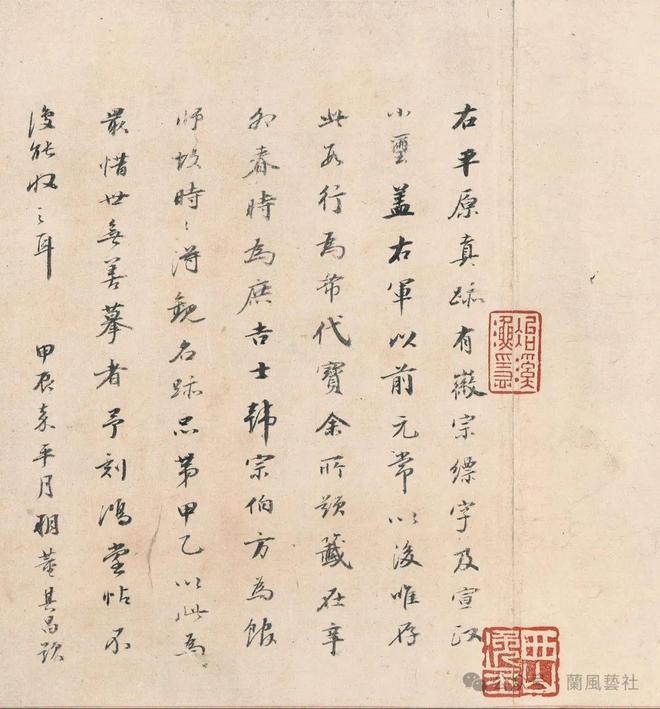 右平原真跡有徽宗縹字及宣和
小璽蓋右軍以前元常以後唯存
此數行為希代寶余所題籤在辛
卯春時為庶吉士韓宗伯方為館
師故時時得觀名跡品第甲乙以此為
最惜世無善摹者予刻鴻堂帖不
復能收之耳 甲辰嘉平月朔董其昌題
公众号 · 蘭風藝社